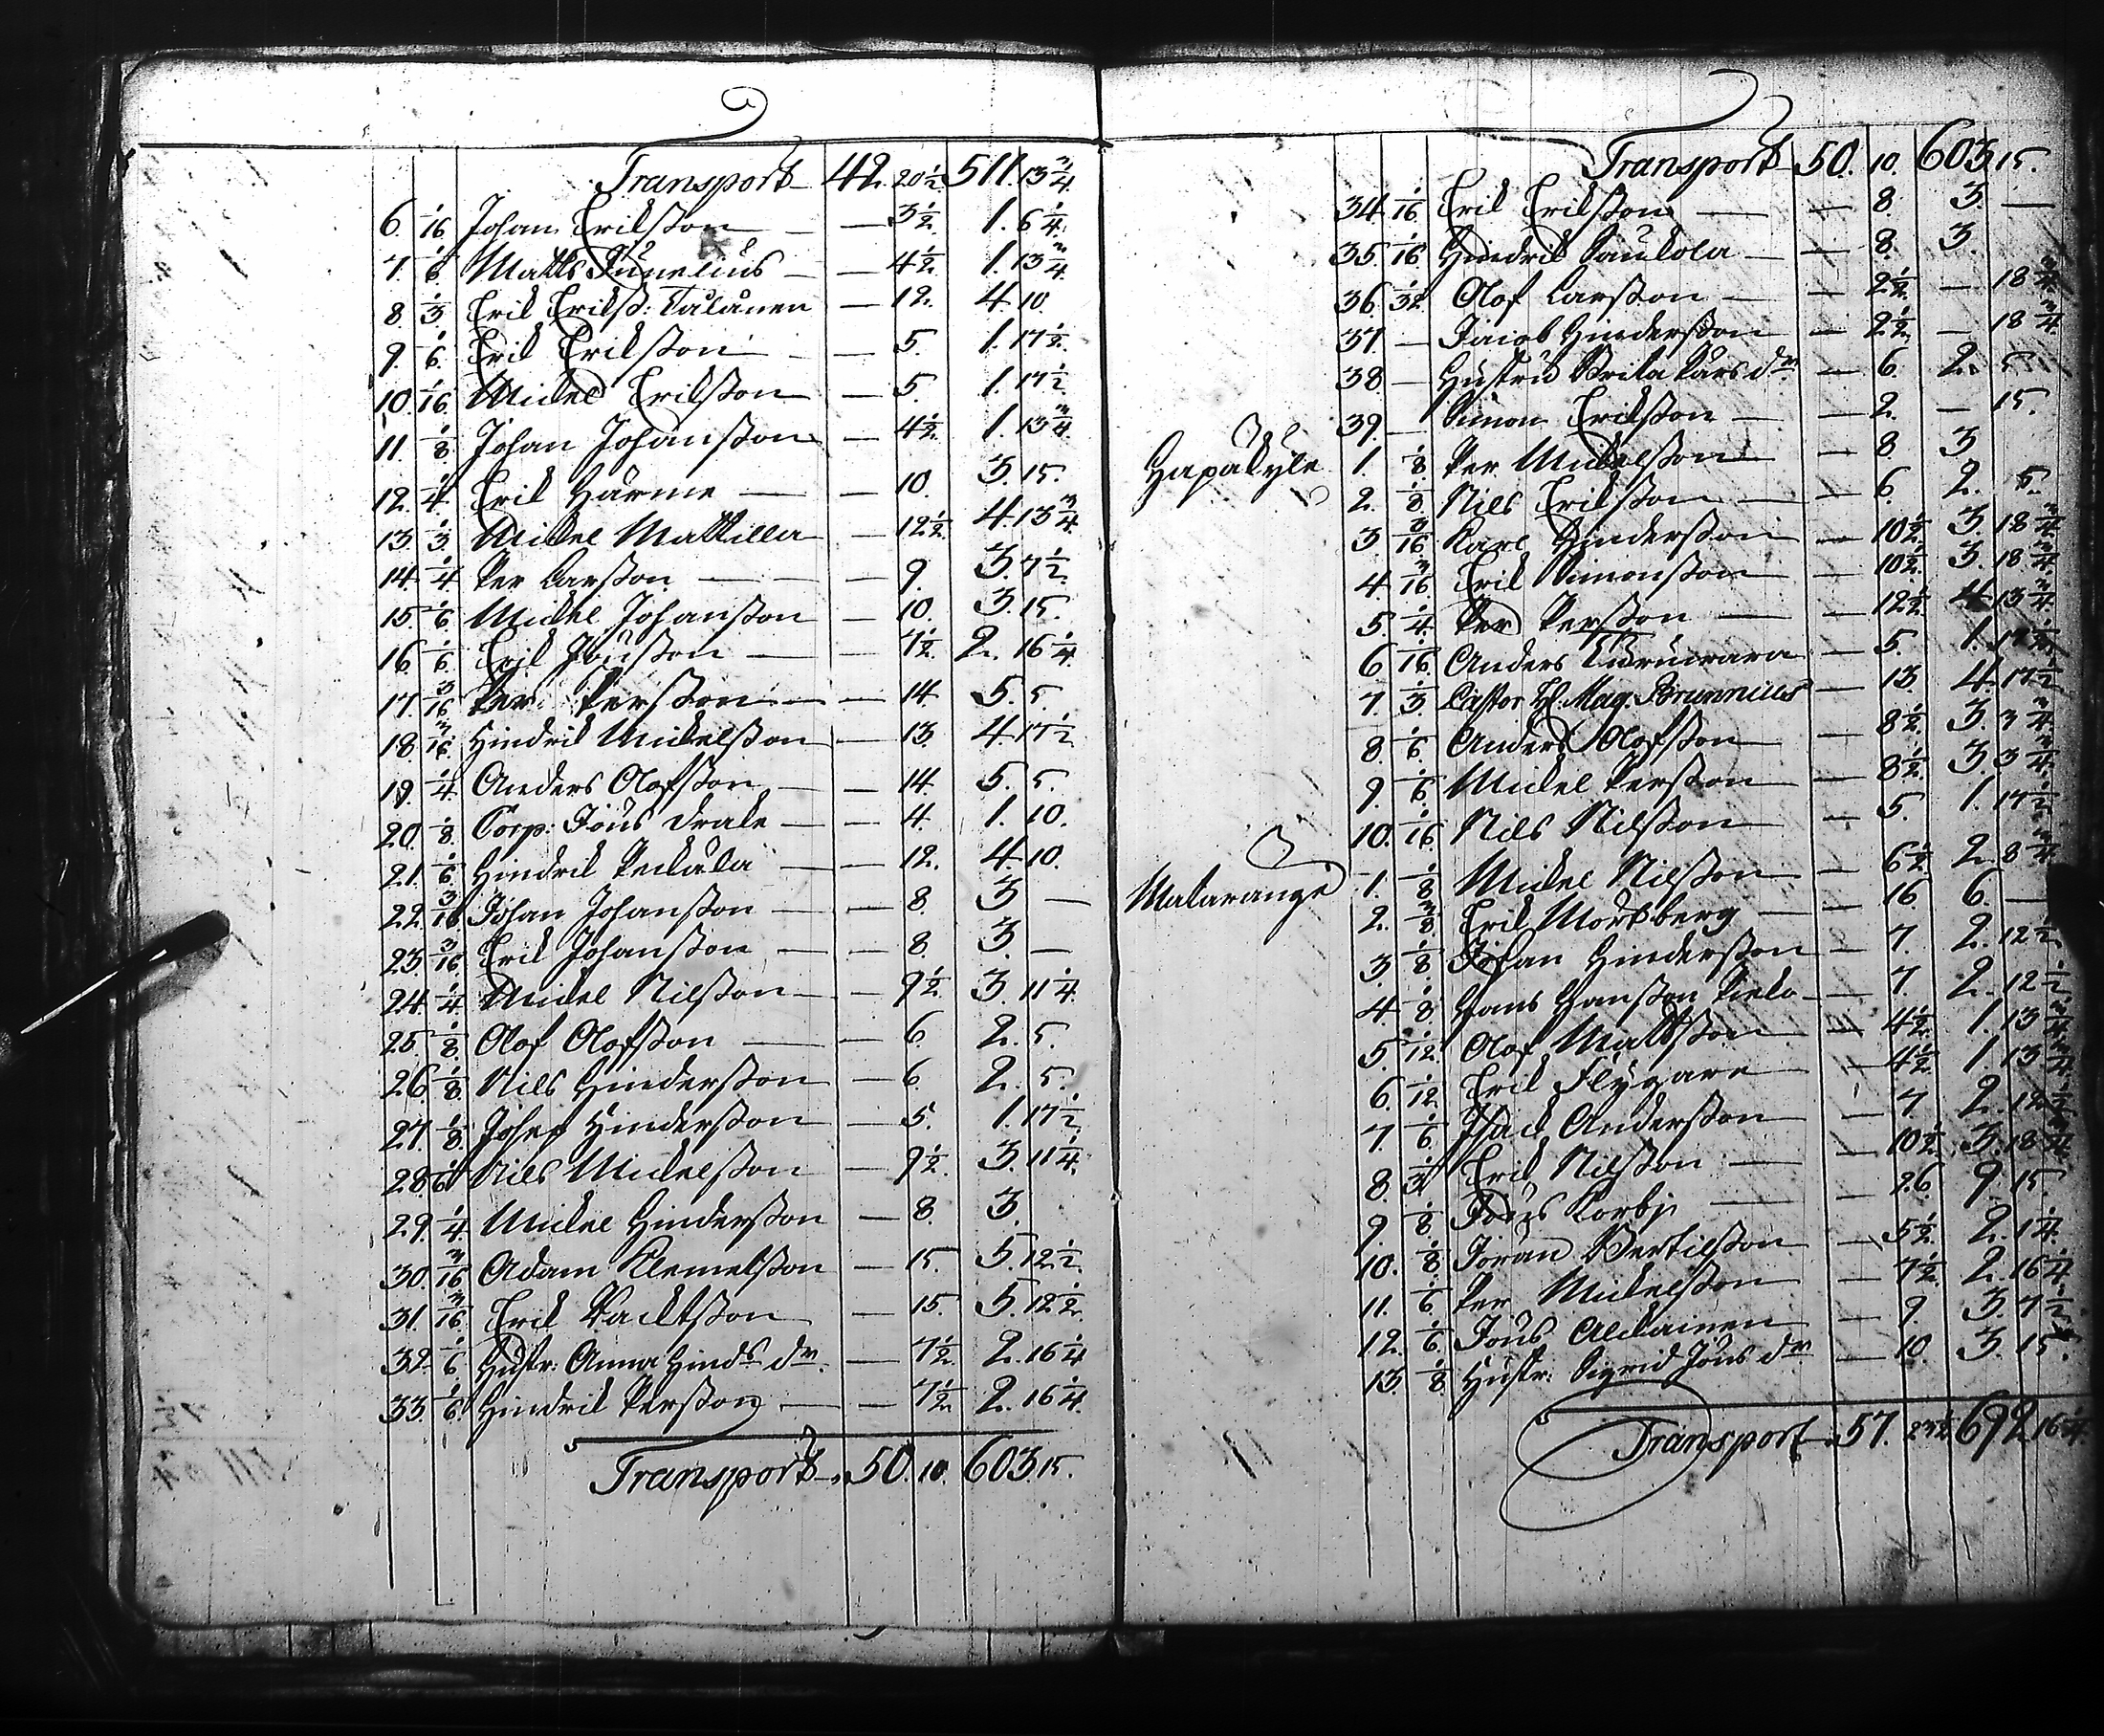 Transport 42. 20 1/2 511. 13 3/4
6. 1/16 Johan Eriksson — 3 1/2. 1. 6 1/4.
7. 1/6 Matts Junelius — 4 1/2. 1. 13 3/4
8. 1/3 Erik Eriks: — 12. 4. 10.
9. 1/6. Erik Eriksson — 5. 1. 17 1/2.
10. 1/16. Mickel Eriksson — 5. 1. 17 1/2
11. 1/8 Johan Johansson — 4 1/2. 1. 13 3/4.
12. 1/4. Erik Härme — 10. 3. 15.
13. 1/3. Mickel Mattilla — 12 1/2. 4. 13 3/4
14. 1/4 Per Larsson — 9. 3. 7 1/2.
15. 1/6 Mickel Johansson — 10. 3. 15.
16. 1/6 Erik Jönsson — 7 1/2. 2. 16 1/4
17. 3/16 Per Persson — 14. 5. 5.
18. 3/16 Hindrik Mickelsson — 13. 4. 17 1/2
19. 1/4. Anders Olofsson — 14. 5. 5.
20. 1/8. Corp: Jöns Drake — 4. 1. 10.
21. 1/6 Hindrik Peckala — 12. 4. 10.
22. 3/16 Johan Johansson — 8. 3 —
23. 3/16. Erik Johansson — 8. 3. —
24. 1/4 Mickel Nilsson — 9 1/2. 3. 11 1/4.
25. 1/8. Olof Olofsson — 6 2. 5.
26. 1/8. Nils Hindersson — 6. 2. 5.
27. 1/8. Josef Hindersson — 5. 1. 17 1/2
28. 1/6 Nils Mickelsson — 9 1/2. 3. 11 1/4.
29. 1/4 Mickel Hindersson — 8. 3.
30. 3/16 Adam Klemetsson — 15. 5. 12 1/2.
31. 3/16. Erik — 15. 5. 12 1/2.
32. 1/6 Hustr: Anna Hinds dr. — 7 1/2. 2. 16 1/4
33. 1/6. Hindrik Persson — 7 1/2. 2. 16 1/4.
Transport 50. 10. 603. 15.
Transport 50. 10. 603. 15.
34. 1/16. Erik Eriksson — 8. 3. —
35. 1/16. Hindrik Paukola — 8. 3.
36. 1/32. Olof Larsson — 2 1/2. — 18 3/4
37. — Jacob Hindersson — 2 1/2. — 18 3/4
38. — Hustru Brita Larsdr — 6. 2. 5.
39. — Simon Eriksson — 2. — 15.
Hapakyle 1. 1/8 Per Mickelsson — 8 3
2. 1/8 Nils Eriksson — 6. 2. 5.
3. 3/16 Karl Hindersson — 10 1/2. 3. 18 3/4
4. 3/16. Erik Simonsson — 10 1/2. 3. 18 3/4
5. 1/4. Per Persson — 12 1/2. 4. 13 3/4.
6. 1/16. Anders — 5. 1. 17 1/2.
7. 1/3. Pastor H: Mag: Brunnius — 13. 4. 17 1/2
8. 1/6 Anders Olofsson — 8 1/2. 3. 3 3/4
9. 1/6. Mickel Persson — 8 1/2. 3. 3 3/4.
10. 1/16 Nils Nilsson — 5. 1. 17 1/2
Matarange 1. 1/8 Mickel Nilsson — 6 1/2. 2. 8 3/4
2. 3/8 Erik Mortberg — 16 6. —
3. 1/8 Johan Hindersson — 7. 2. 12 1/2
4. 1/8 Hans Hansson — 7 2. 12 1/2
5. 1/12. Olof Mattsson — 4 1/2. 1. 13 3/4
6. 1/12 Erik Flygare — 4 1/2. 1. 13 3/4
7. 1/6 Isack Andersson — 7 2. 12 1/2
8. 1/3 Erik Nilsson — 10 1/2. 3. 18 3/4
9. 1/8 Jöns Korby — 26 9. 15
10. 1/8. Jöran Bertilsson — 5 1/2. 2. 1 1/4.
11. 1/6 Per Mickelsson — 7 1/2. 2. 16 1/4.
12. 1/6 Jöns Alkainen — 9 3. 7 1/2
13. 1/8 Hustr: Sigrid Jönsdr — 10. 3. 15.
Transport 57. 23 1/2 692. 16 1/4.